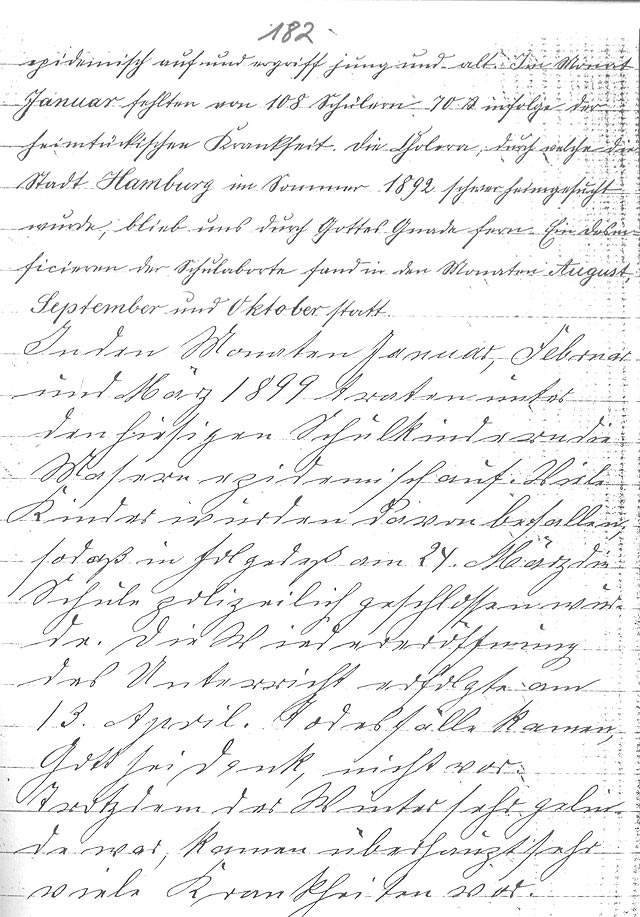 182
epidemisch auf und ergriff jung und alt. Im Monat
Januar fehlten von 108 Schülern 70 infolge der
heimtückischen Krankheit. Die Cholera, durch welche die
Stadt Hamburg im Sommer 1892 schwer heimgesucht
wurde, blieb uns durch Gottes Gnade fern. Ein desin-
ficieren der Schulaborte fand in den Monaten August,
September und Oktober statt.
In den Monaten Januar, Februar
und März 1899 traten unter
den hiesigen Schulkindern die
Masern epidemisch auf. Viele
Kinder wurden davon befallen,
sodaß in folgedeß am 24. März die
Schule polizeilich geschlossen wur-
de. Die Wiedereröffnung
des Unterricht erfolgte am
13. April. Todesfälle kamen,
Gott sei Dank, nicht vor.
Trotzdem der Winter sehr gelin-
de war, kamen überhaupt sehr
viele Krankheiten vor.